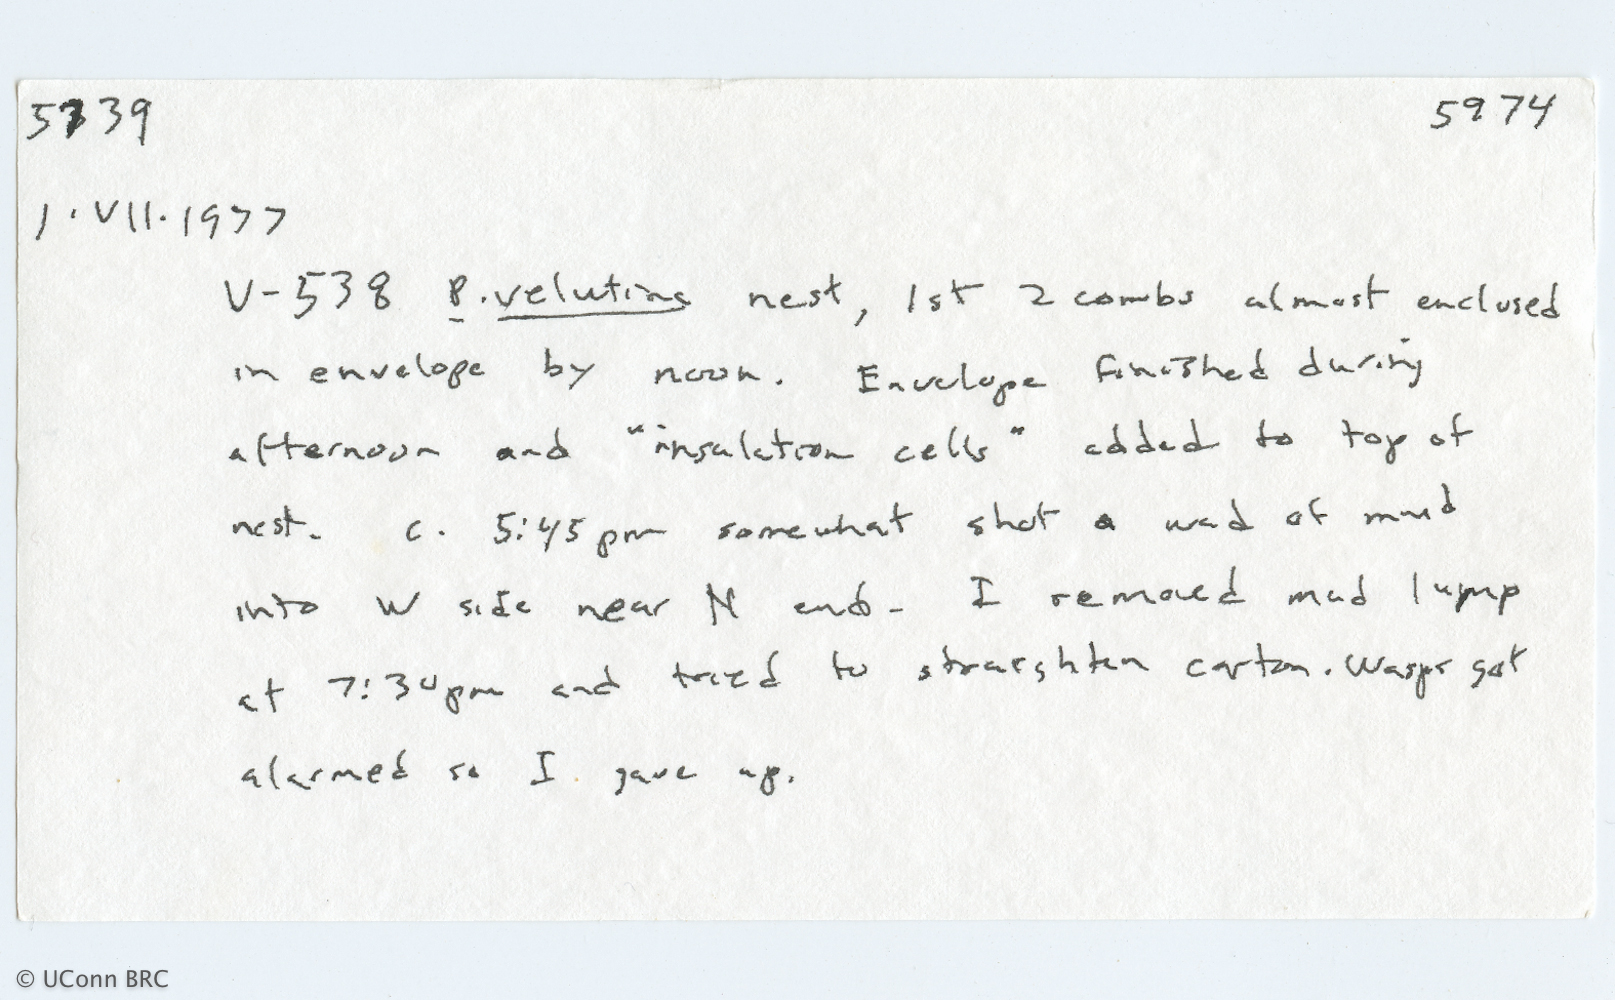 5339 5974
1.VII.1977
V-538 P. velutina nest, 1st 2 combs almost enclosed
in envelope by noon. Envelope finished during
afternoon and "insulation cells" added to top of
nest. c. 5:45pm somewhat shot a wad of mud
into W side near N end. I removed mud lump
at 7:30pm and tried to straighten carton. Wasps got
alarmed so I gave up.
© UConn BRC